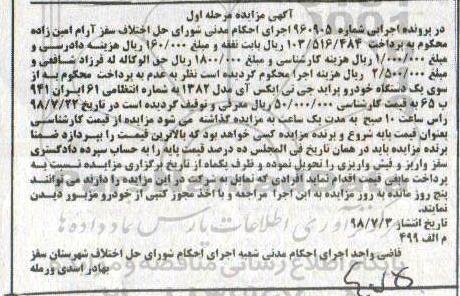 آگهی مزایده مرحله اول
در پرونده اجرایی شماره ۹۶۰۹۰۵ اجرای احکام مدنی شورای حل اختلاف سقز آرام امین زاده
محکوم به پرداخت ۱۰۳/۵۱۶/۴۸۴ ریال بابت نفقه و مبلغ ۱۶۰/۰۰۰ ریال هزینه دادرسی و
مبلغ ۱/۰۰۰/۰۰۰ ریال هزینه کارشناسی و مبلغ ۱۸۰۰/۰۰۰ ریال حق الوکاله له فرزاد شافعی و
مبلغ ۲/۵۰۰/۰۰۰ ریال هزینه اجرا محکوم گردیده است نظر به عدم به پرداخت محکوم به از
سوی یک دستگاه خودرو پراید جی تی ایکس آی مدل ۱۳۸۲ به شماره انتظامی ۶۱ ایران ۹۴۱
ب ۶۵ به قیمت کارشناسی ۵۰/۰۰۰/۰۰۰ ریال معرفی و توقیف گردیده است در تاریخ ۹۸/۷/۲۲
راس ساعت ۱۰ صبح به مدت یک ساعت به مزایده گذاشته می شود مزایده از قیمت کارشناسی
بعنوان قیمت پایه شروع و برنده مزایده کسی خواهد بود که بالاترین قیمت را بپردازد ضمنا
برنده مزایده باید در همان تاریخ فی المجلس ده درصد قیمت پایه را به حساب سپرده دادگستری
سقز واریز و فیش واریزی را تحویل نموده و ظرف یکماه از تاریخ برگزاری مزایده نسبت به
پرداخت مابقی قیمت اقدام نماید افرادی که تمایل به شرکت در این مزایده را دارند می توانند
پنج روز مانده به روز مزایده به این اجرا مراجعه و با اخذ مجوز کتبی از خودرو مزبور دیدن
نمایند.
تاریخ انتشار ۹۸/۷/۳
م الف ۴۹۹
قاضی واحد اجرای احکام مدنی شعبه اجرای احکام شورای حل اختلاف شهرستان سقز
بهادر اسدی ورمله